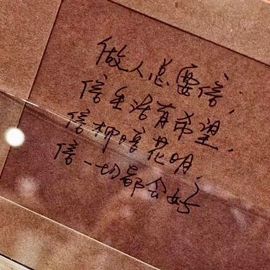 做人总要信，
信生活有希望，
信柳暗花明，
信一切都会好